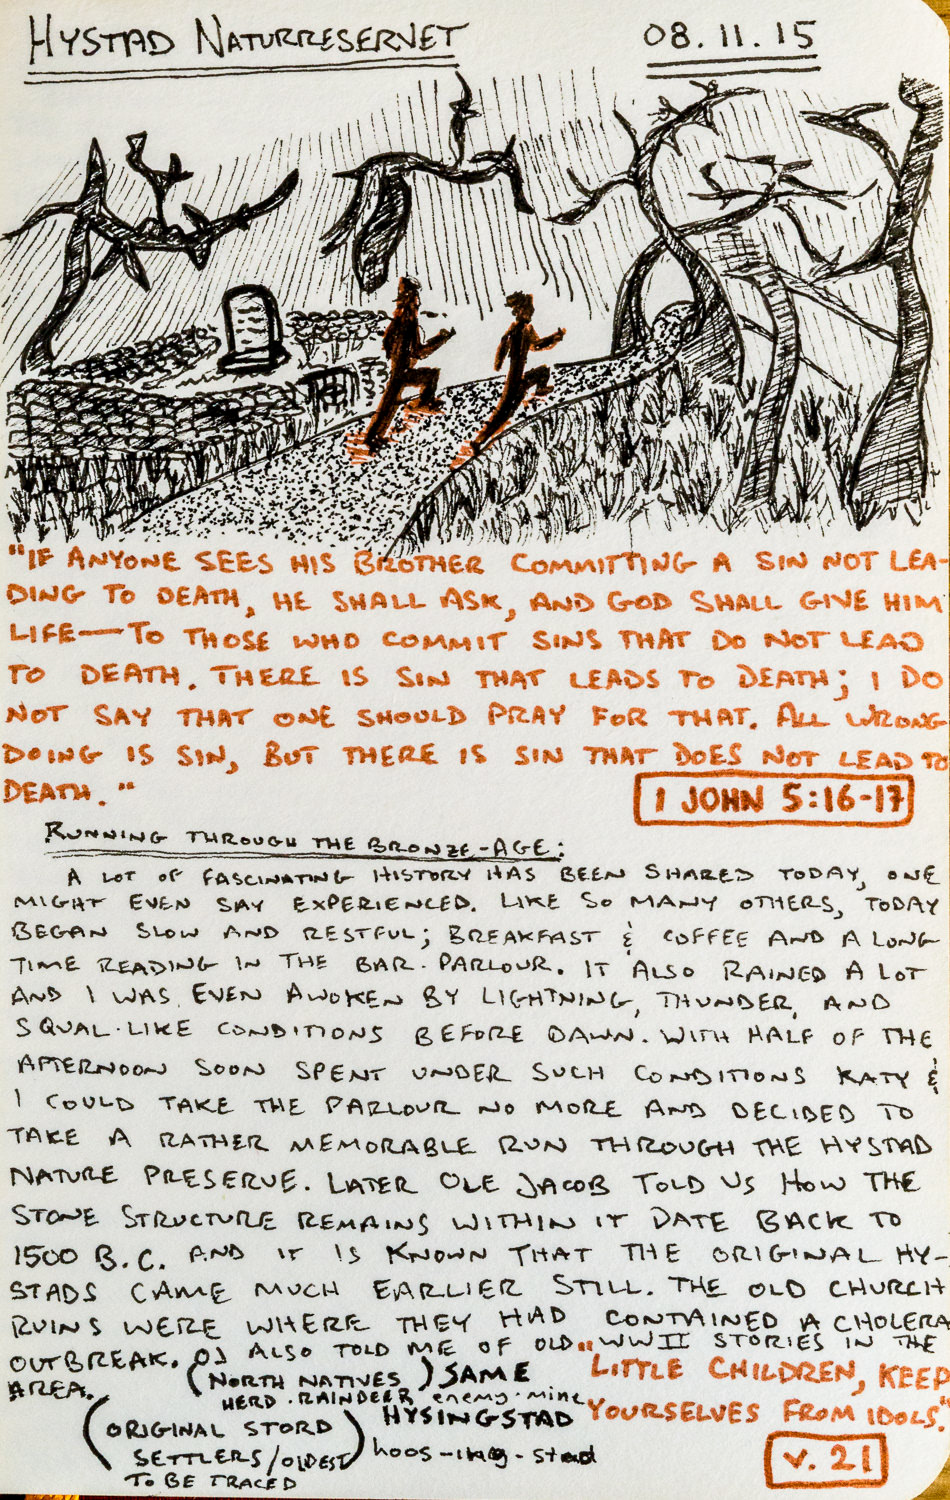 HYSTAD NATURRESERVET
08.11.15
"IF ANYONE SEES HIS BROTHER COMMITTING A SIN NOT LEA-
DING TO DEATH, HE SHALL ASK, AND GOD SHALL GIVE HIM
LIFE—TO THOSE WHO COMMIT SINS THAT DO NOT LEAD
TO DEATH. THERE IS SIN THAT LEADS TO DEATH; I DO
NOT SAY THAT ONE SHOULD PRAY FOR THAT. ALL WRONG
DOING IS SIN, BUT THERE IS SIN THAT DOES NOT LEAD TO
DEATH."
1 JOHN 5:16-17
RUNNING THROUGH THE BRONZE-AGE:
A LOT OF FASCINATING HISTORY HAS BEEN SHARED TODAY, ONE
MIGHT EVEN SAY EXPERIENCED. LIKE SO MANY OTHERS, TODAY
BEGAN SLOW AND RESTFUL; BREAKFAST & COFFEE AND A LONG
TIME READING IN THE BAR-PARLOUR. IT ALSO RAINED A LOT
AND I WAS EVEN AWOKEN BY LIGHTNING, THUNDER, AND
SQUAL-LIKE CONDITIONS BEFORE DAWN. WITH HALF OF THE
AFTERNOON SOON SPENT UNDER SUCH CONDITIONS KATY &
I COULD TAKE THE PARLOUR NO MORE AND DECIDED TO
TAKE A RATHER MEMORABLE RUN THROUGH THE HYSTAD
NATURE PRESERVE. LATER OLE JACOB TOLD US HOW THE
STONE STRUCTURE REMAINS WITHIN IT DATE BACK TO
1500 B.C. AND IT IS KNOWN THAT THE ORIGINAL HY-
STADS CAME MUCH EARLIER STILL. THE OLD CHURCH
RUINS WERE WHERE THEY HAD CONTAINED A CHOLERA
OUTBREAK. OJ ALSO TOLD ME OF OLD WWII STORIES IN THE
AREA.
(NORTH NATIVES) SAME
HERD-RAINDEER enemy-mine
(ORIGINAL STORD
SETTLERS/OLDEST)
TO BE TRACED
HYSINGSTAD
hoos-ing-stad
"LITTLE CHILDREN, KEEP
YOURSELVES FROM IDOLS."
v. 21